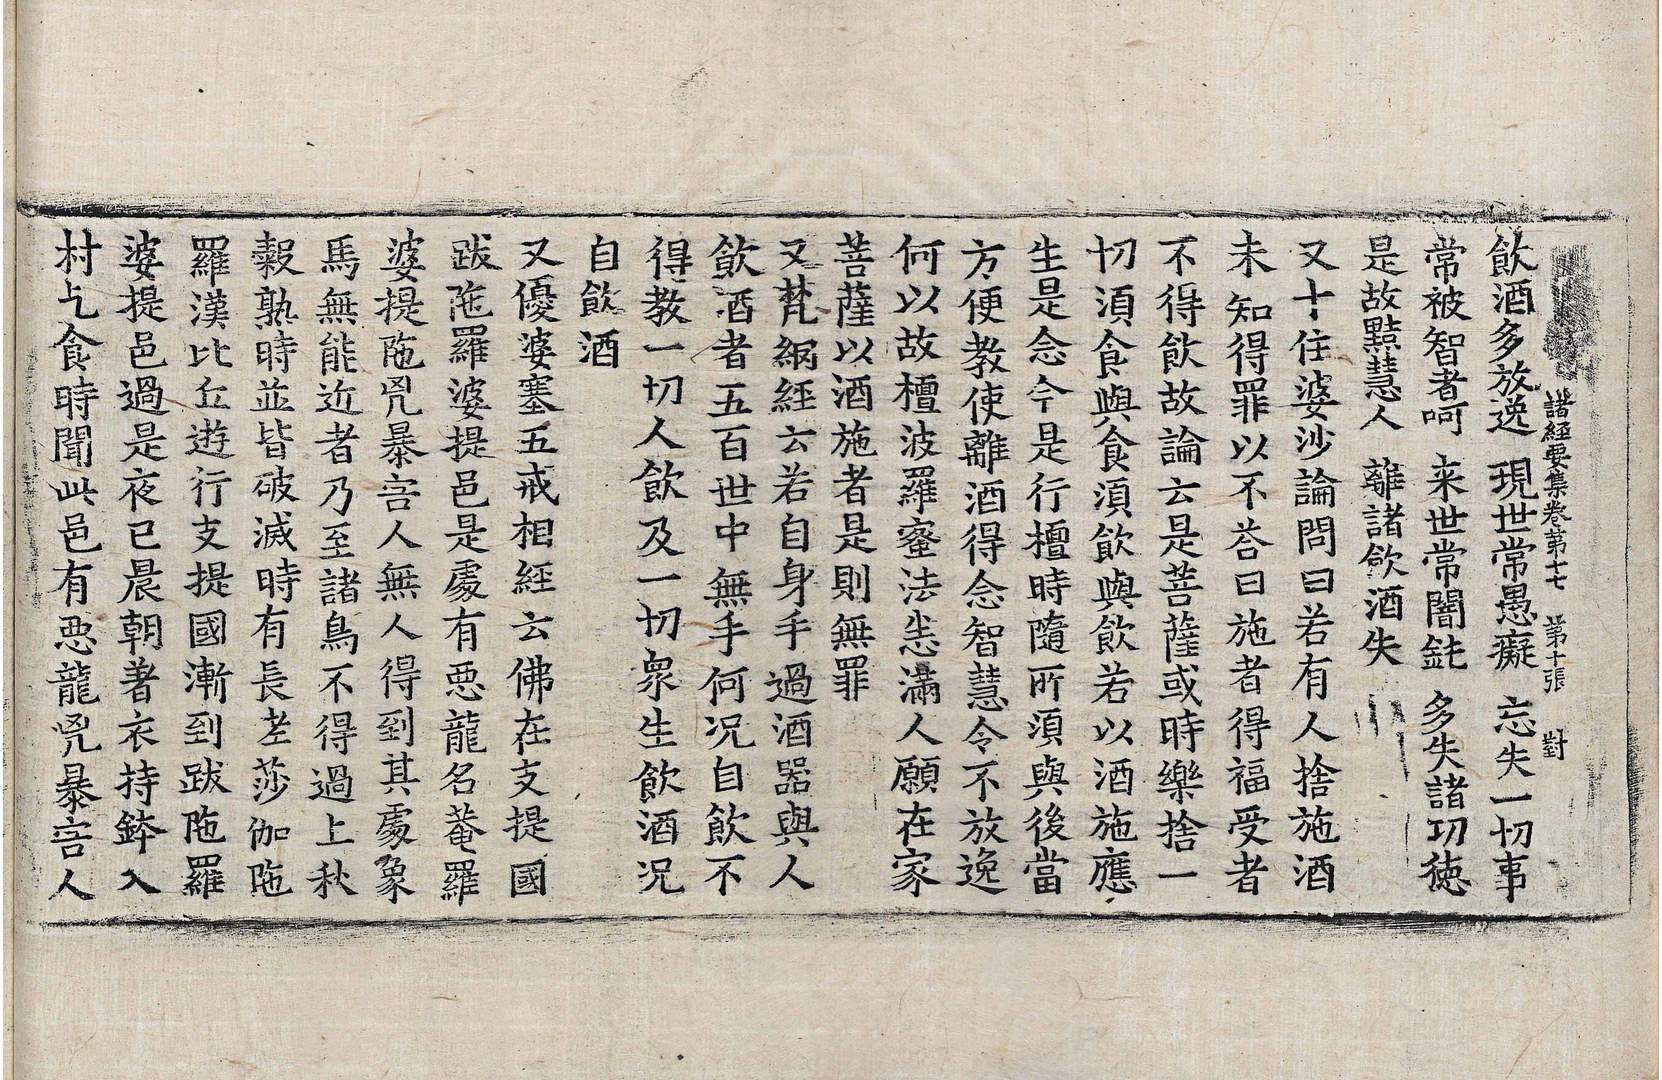 諸經要集卷第十七　第十張　對
飲酒多放逸　現世常愚癡　忘失一切事
常被智者呵　来世常闇鈍　多失諸功徳
是故黠慧人　離諸飲酒失
又十住婆沙論問曰若有人捨施酒
未知得罪以不荅曰施者得福受者
不得飲故論云是菩薩或時樂捨一
切湏食與食湏飲與飲若以酒施應
生是念今是行檀時隨所湏與後當
方便教使離酒得念智慧令不放逸
何以故檀波羅蜜法悉滿人願在家
菩薩以酒施者是則無罪
又梵網經云若自身手過酒器與人
飲酒者五百世中無手何况自飲不
得教一切人飲及一切衆生飲酒况
自飲酒
又優婆塞五戒相經云佛在支提國
跋陁羅婆提邑是處有惡龍名菴羅
婆提陁兇暴害人無人得到其處象
馬無能近者乃至諸鳥不得過上秋
穀熟時並皆破滅時有長老莎伽陁
羅漢比丘遊行支提國漸到跋陁羅
婆提邑過是夜已晨朝著衣持鉢入
村乞食時聞此邑有惡龍兇暴害人